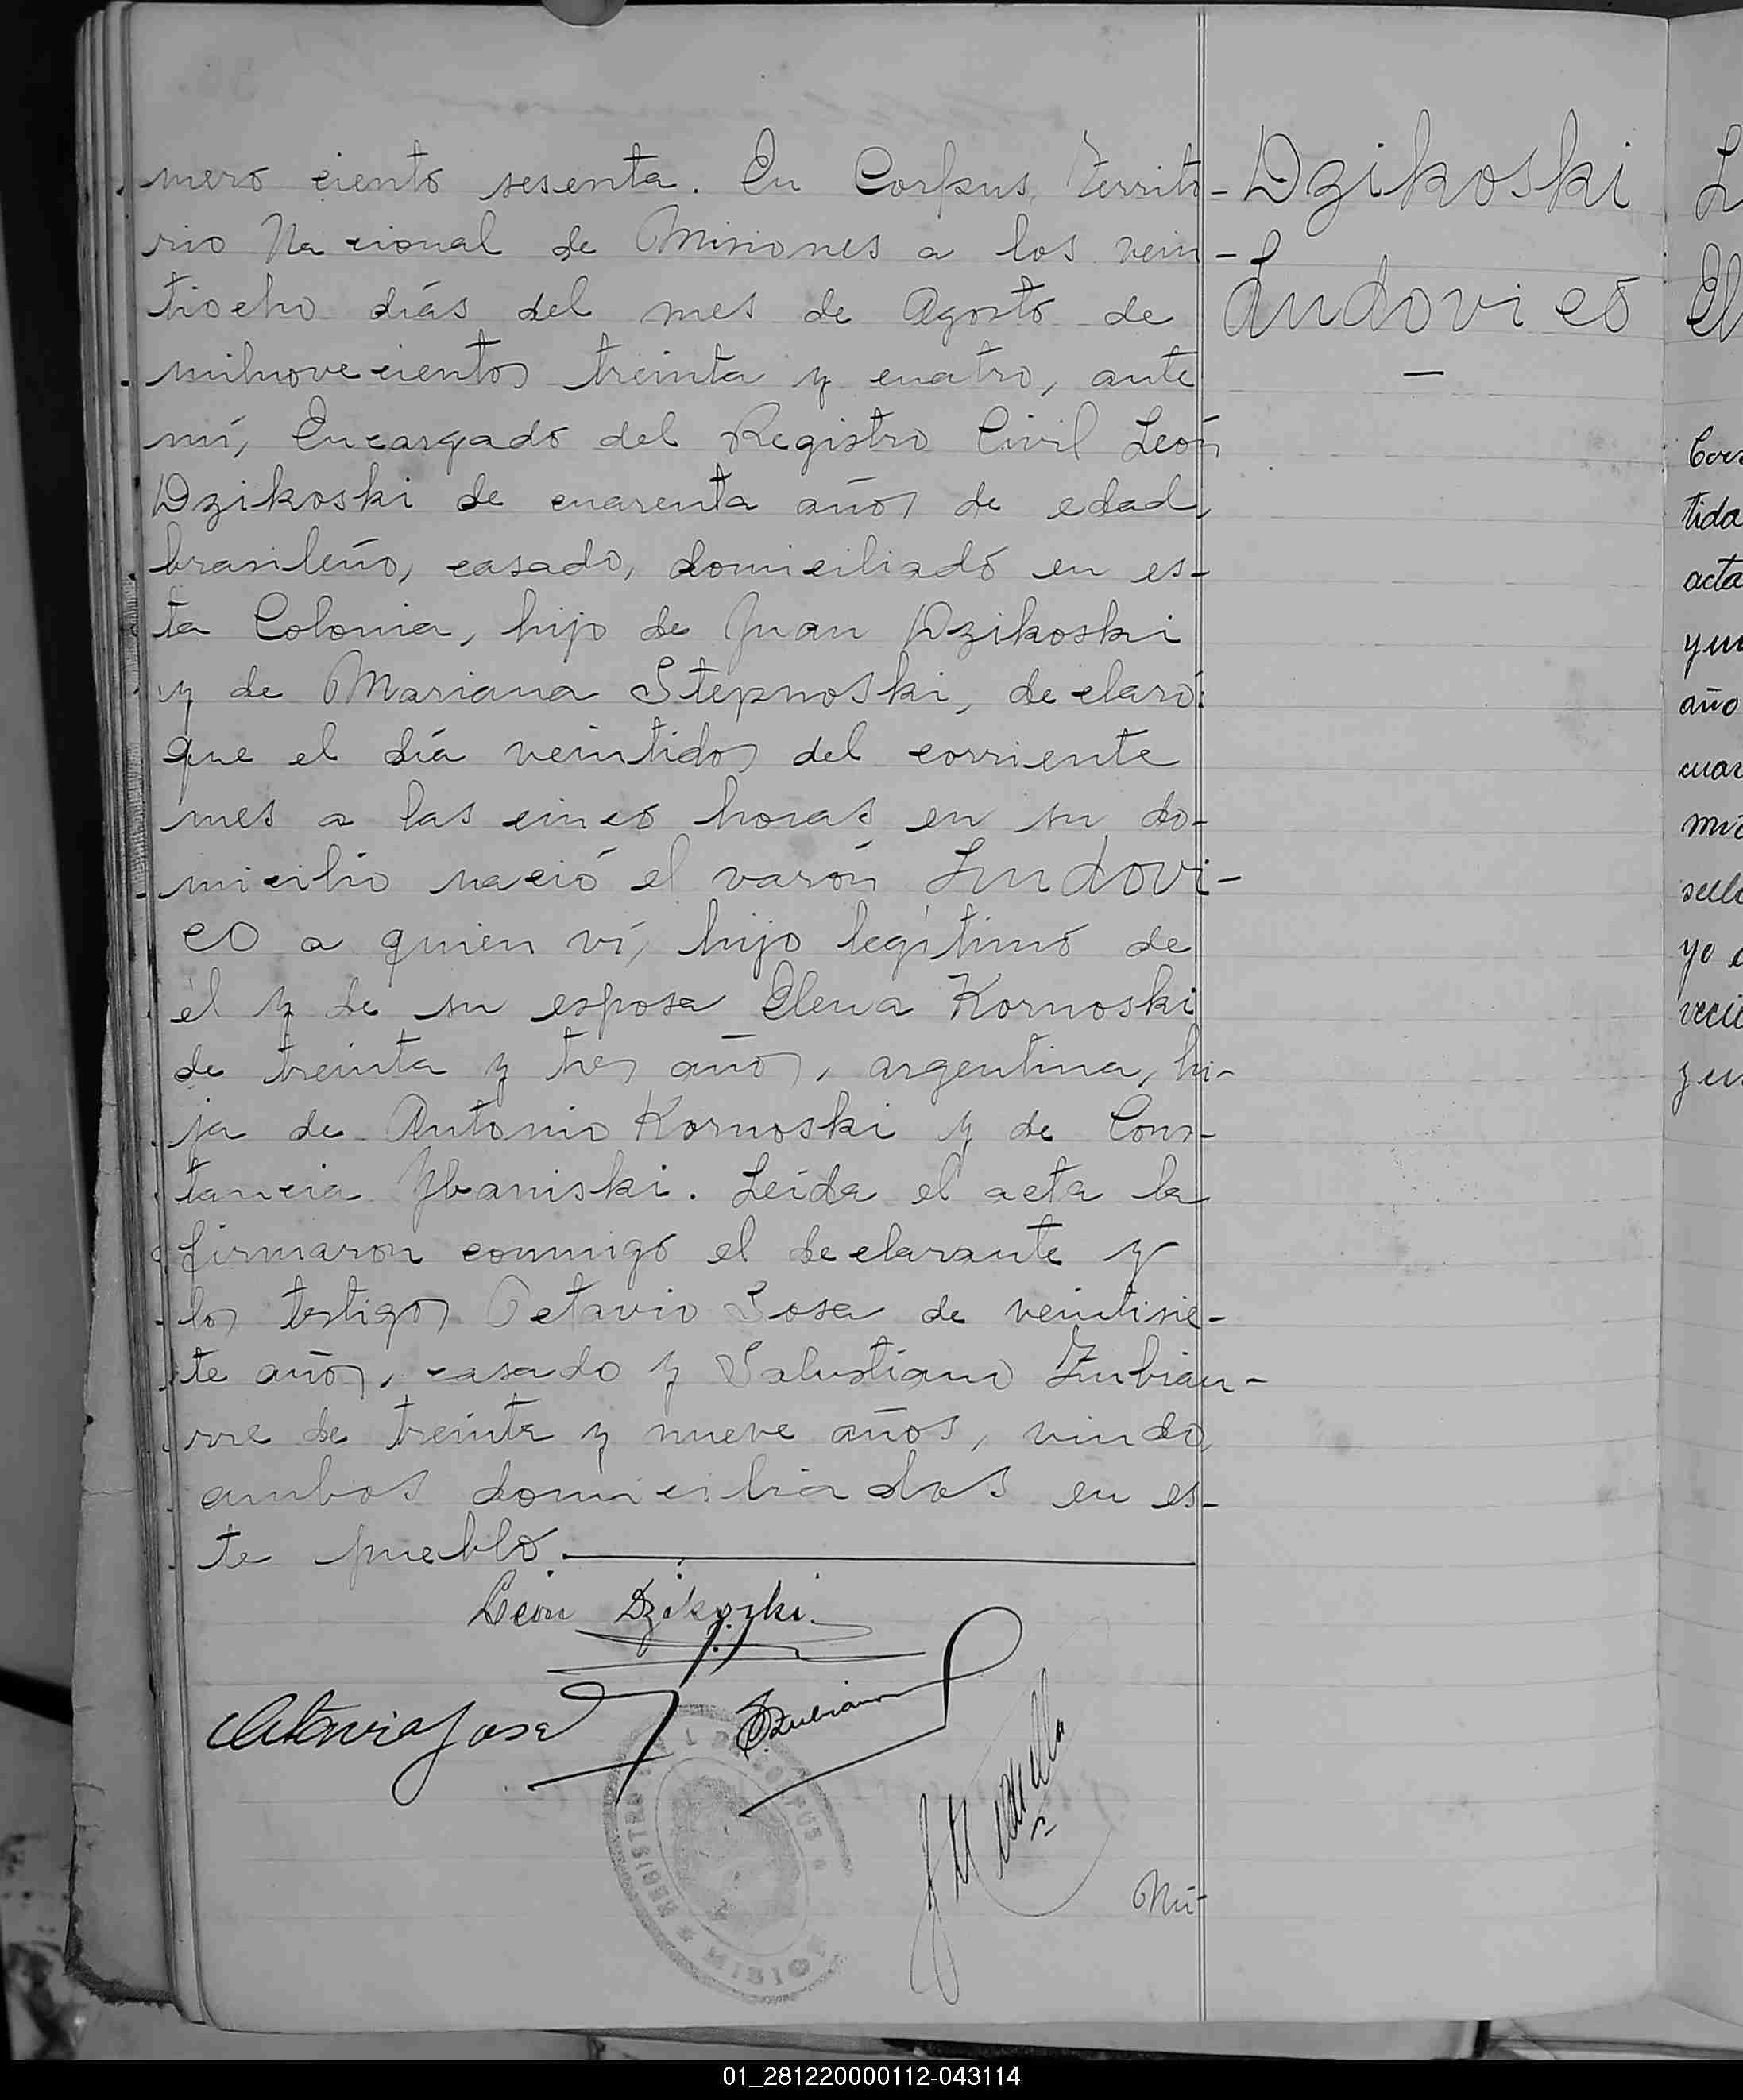 mero ciento sesenta. En Corpus, Territo-
rio Nacional de Misiones a los vein-
tiocho días del mes de Agosto de
milnovecientos treinta y cuatro, ante
mí, Encargado del Registro Civil León
Dzikoski de cuarenta años de edad,
brasileño, casado, domiciliado en es-
ta Colonia, hijo de Juan Dzikoski
y de Mariana Stepnoski, declaró:
que el día veintidos del corriente
mes a las cinco horas en su do-
micilio nació el varón Ludovi-
co a quien ví, hijo legítimo de
él y de su esposa Elena Kornoski
de treinta y tres años, argentina, hi-
ja de Antonio Kornoski y de Cons-
tancia Ybaniski. Leída el acta la
firmaron conmigo el declarante y
los testigos Octavio Sosa de veintisie-
te años, casado y Salustiano Zubiau-
rre de treinta y nueve años, viudo,
ambos domiciliados en es-
te pueblo.
León Dzikozki
Octavio Sosa
REGISTRO CIVIL DE CORPUS
MISIONES
Nú-
Dzikoski
Ludovico
—
tida
acta
año
01_281220000112-043114